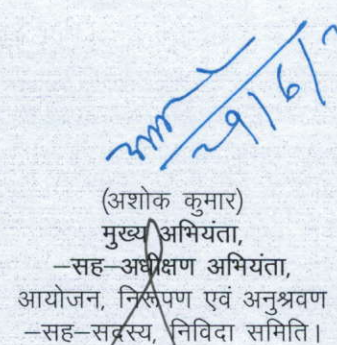 29/6/
(अशोक कुमार)
मुख्य अभियंता,
–सह–अधीक्षण अभियंता,
आयोजन, निरूपण एवं अनुश्रवण
–सह–सदस्य, निविदा समिति।